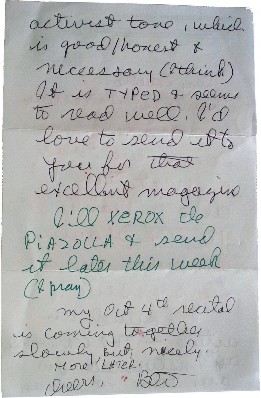 activist tone, which
is good/honest &
necessary (I think)
It is TYPED & seems
to read well. I'd
love to send it to
you for that
excellent magazine
I'll XEROX the
PiAZOLLA & send
it later this week
(I pray)
my Oct 4th recital
is coming together
slowly, but, nicely.
More LATER.
cheers,